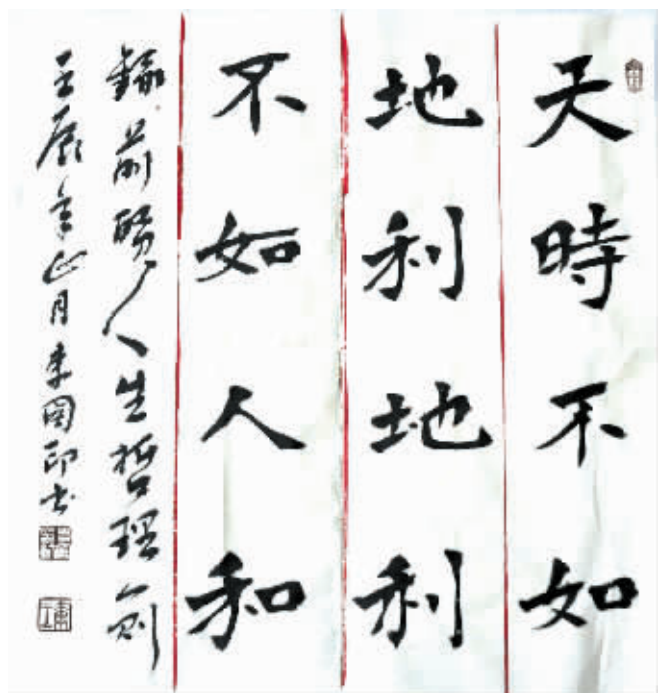 天時不如
地利地利
不如人和
錄前賢人生哲理一則
壬辰年正月李國印書